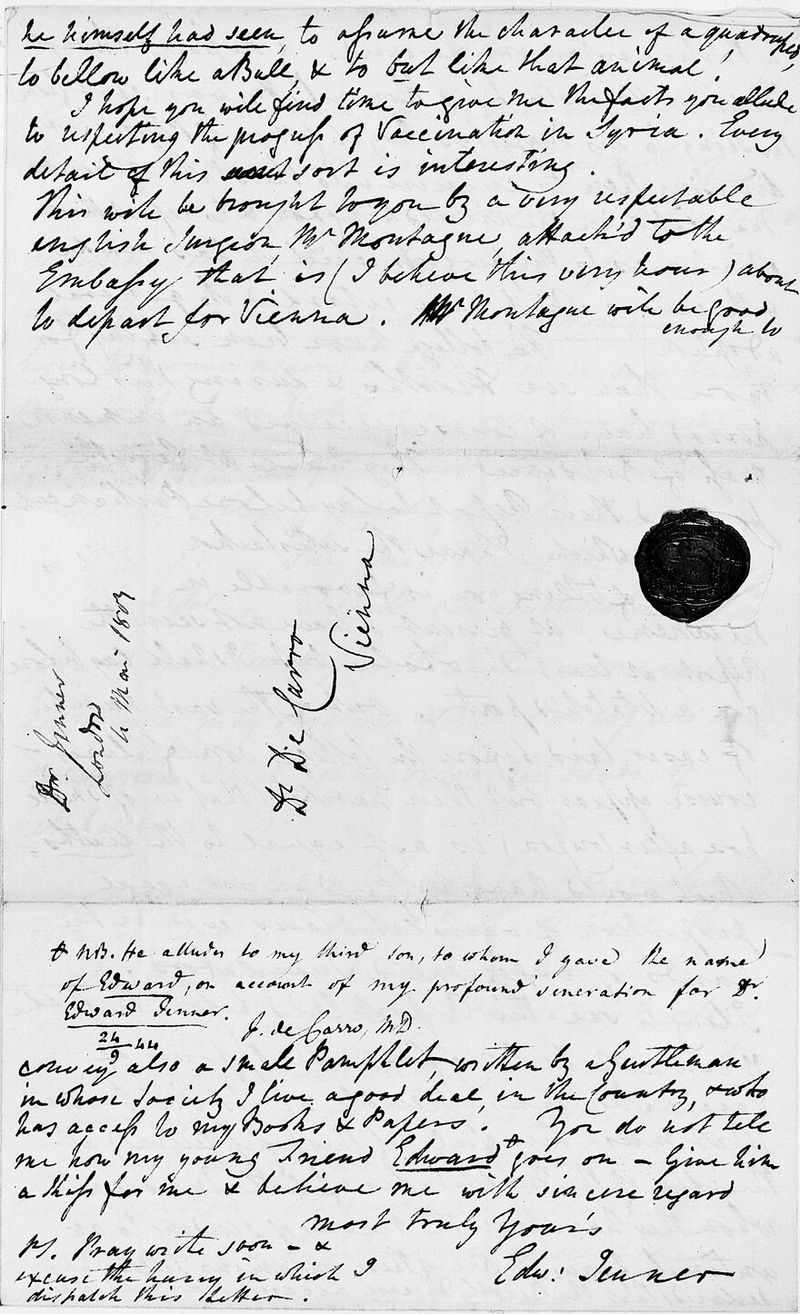 he himself had seen, to assume the character of a quadruped,
to bellow like a Bull, & to but like that animal!
I hope you will find time to give me the facts you allude
to respecting the progress of Vaccination in Syria. Every
detail of this sort is interesting.
This will be brought to you by a very respectable
english Surgeon, Mr Montague, attach'd to the
Embassy that is (I believe this very hour) about
to depart for Vienna. Mr Montague will be good
enough to
Dr. Jenner
London
Mai 1803
Dr De Carro
Vienna
+ NB. He alludes to my third son, to whom I gave the name
of Edward, on account of my profound veneration for Dr.
Edward Jenner.
J. de Carro, MD.
24 44
9
convey also a small Pamphlet, written by a Gentleman
in whose Society I live a good deal, in the Country, & who
has access to my Books & Papers. You do not tell
me how my young Friend Edward + goes on – Give him
a kiss for me & believe me with sincere regard
most truly Yours
Edw: Jenner
PS. Pray write soon – &
excuse the hurry in which I
dispatch this Letter.